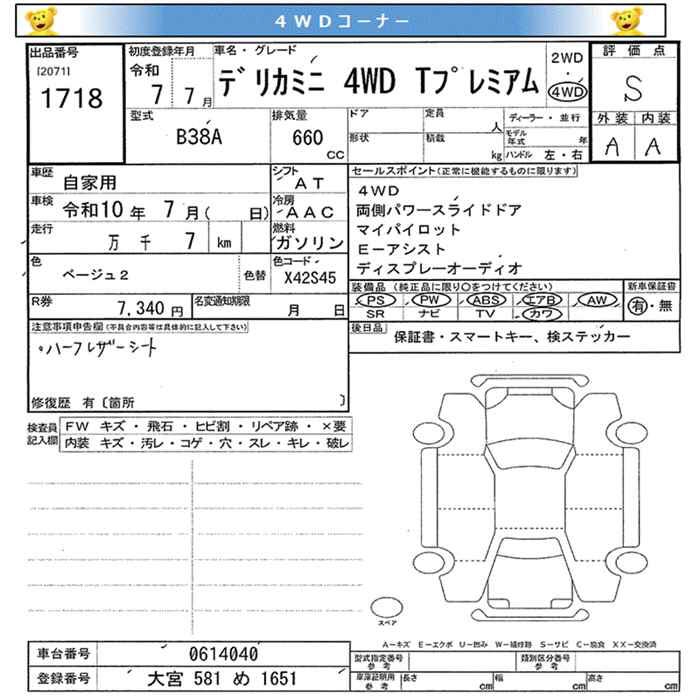 4WDコーナー
出品番号
[2071]
1718
初度登録年月
令和
7 7月
車名・グレード
デリカミニ 4WD Tプレミアム
2WD
・
4WD
評価点
S
外装 内装
A A
型式
B38A
排気量
660
cc
ドア
形状
定員
人
積載
kg
ディーラー・並行
モデル年式 年
ハンドル 左・右
車歴
自家用
シフト
AT
車検
令和10年 7月( 日)
冷房
AAC
走行
万 千 7 km
燃料
ガソリン
色
ベージュ2
色替
色コード
X42S45
R券
7,340円
名変通知期限
月 日
セールスポイント(正常に機能するものに限ります)
4WD
両側パワースライドドア
マイパイロット
E-アシスト
ディスプレーオーディオ
装備品 (純正品に限り○をつけてください)
PS PW ABS エアB AW
SR ナビ TV カワ
新車保証書
有・無
後日品
保証書・スマートキー、検ステッカー
注意事項申告欄(不具合内容等は具体的に記入して下さい)
・ハーフレザーシート
修復歴 有〔箇所 〕
検査員記入欄
FW キズ・飛石・ヒビ割・リペア跡・×要
内装 キズ・汚レ・コゲ・穴・スレ・キレ・破レ
スペア
A-キズ E-エクボ U-凹み W-補修跡 S-サビ C-腐食 XX-交換済
車台番号
0614040
登録番号
大宮 581 め 1651
型式指定番号
参考
類別区分番号
参考
車庫証明用
参考
長さ cm
幅 cm
高さ cm